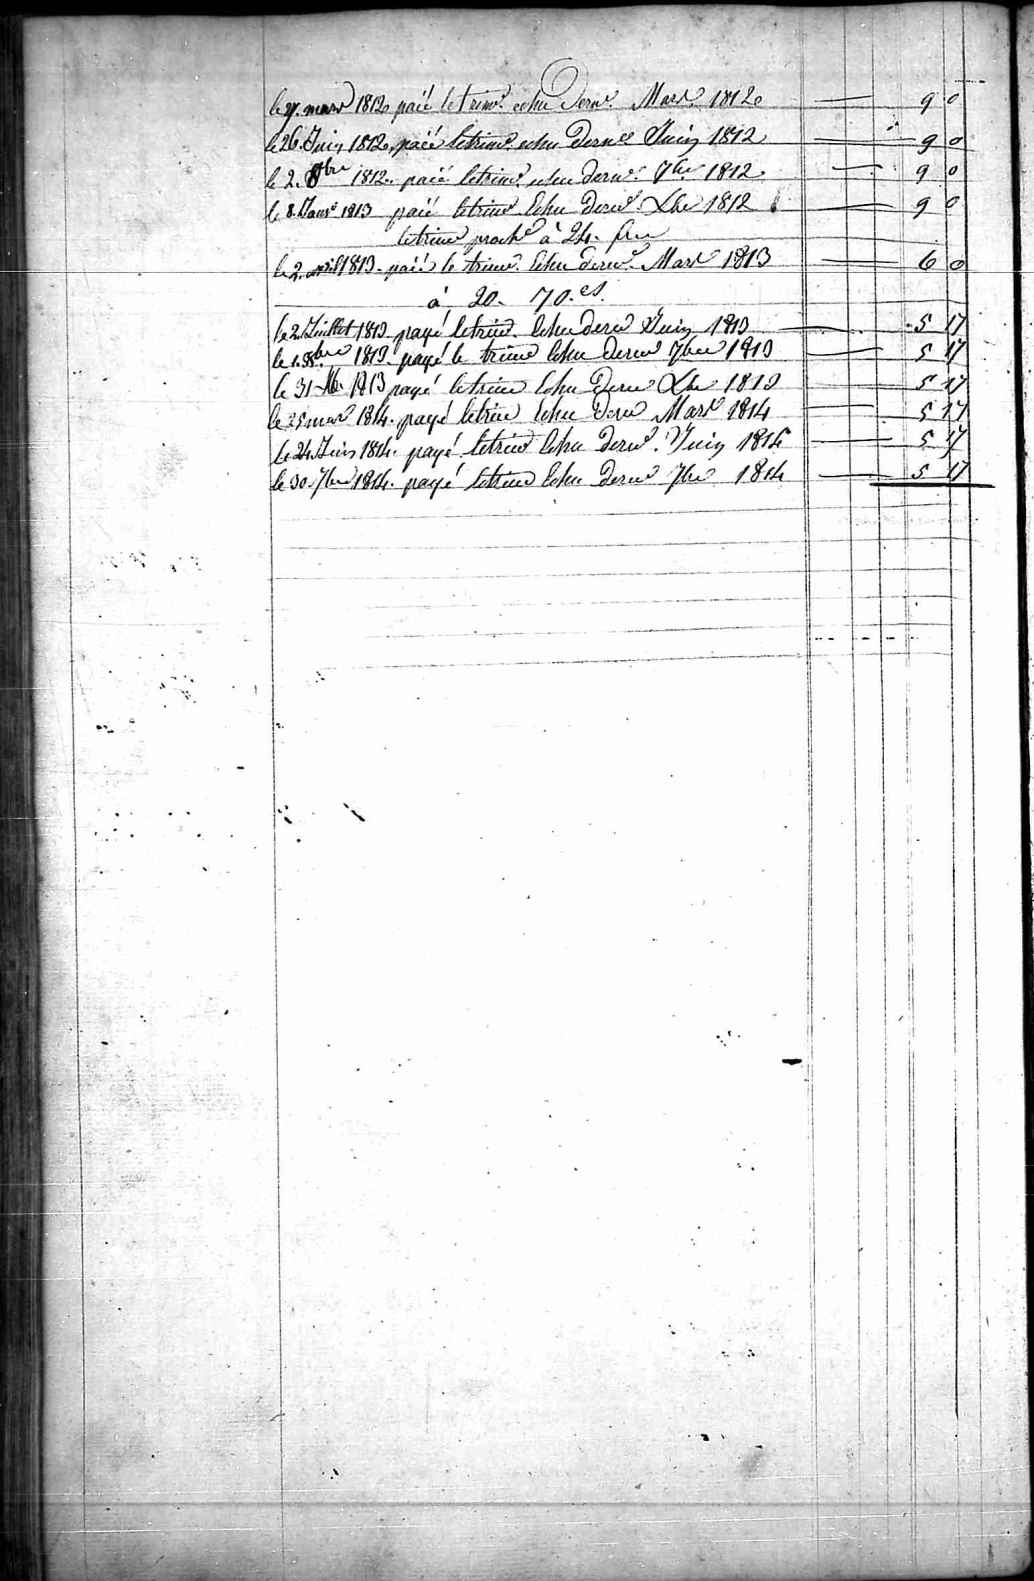 le 27. mars 1812 paié le trime. echu Derne. Mars 1812 9 0
le 26. Juin 1812, paié le trime. echu Derne Juin 1812 9 0
le 2. 8bre 1812. paié le trime. echu derne. 7bre 1812. 9 0
le 8. Janv. 1813 paié le trime Echu Derne. Xbre 1812 9 0
le trime proche à 24. frs
le 2. avril 1813. paié le trime. Echu derne. Mars 1813 6 0
à 20. 70.cs.
le 2 Juillet 1813 payé le trime. Echu derne Juin 1813 5 17
le 1. 8bre 1813. payé le trime Echu derne 7bre 1813 5 17
le 31 Xbre 1813 payé le trime Echu Derne Xbre 1813 5 17
le 25 mars 1814. payé le trime Echu Derne Mars 1814 5 17
le 24 Juin 1814. payé le trime Echu Derne. Juin 1814 5 17
le 30. 7bre 1814. payé le trime Echu Derne 7bre 1814 5 17